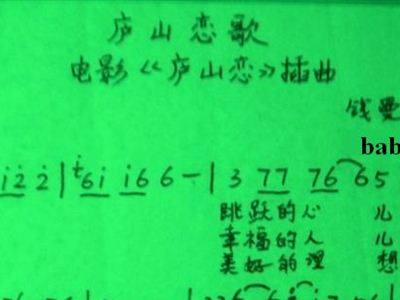 庐山恋歌
电影《庐山恋》插曲
钱曼
bab
i 2 2 | i 6i i6 6 - | 3 77 76 65
跳跃的心 儿
幸福的人 儿
美好的理 想